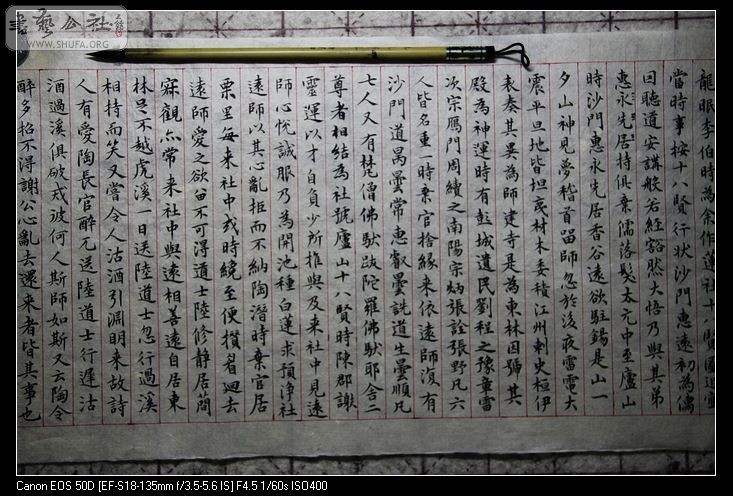 書藝公社
WWW.SHUFA.ORG
龍眠李伯時為余作蓮社十八賢圖追寫
當時事按十八賢行狀沙門惠遠初為儒
因聽道安講般若經豁然大悟乃與其弟
惠永先居持俱棄儒落髮太元中至廬山
時沙門惠永先居香谷遠欲駐錫是山一
夕山神見夢稽首留師忽於後夜雷電大
震平旦地皆坦夷材木委積江州刺史桓伊
表奏其異為師建寺是為東林因號其
殿為神運時有彭城遺民劉程之豫章雷
次宗雁門周續之南陽宗炳張詮張野凡六
人皆名重一時棄官捨緣來依遠師復有
沙門道昺曇常惠叡曇詵道生曇順凡
七人又有梵僧佛馱跋陀羅佛馱耶舍二
尊者相結為社號廬山十八賢時陳郡謝
靈運以才自負少所推與及來社中見遠
師心悅誠服乃為開池種白蓮求預淨社
遠師以其心亂拒而不納陶潛時棄官居
栗里每來社中或時繞至便攢眉迴去
遠師愛之欲留不可得道士陸修静居簡
寂觀亦常來社中與遠相善遠自居東
林足不越虎溪一日送陸道士忽行過溪
相持而笑又嘗令人沽酒引淵明來故詩
人有愛陶長官醉兀送陸道士行遲沽
酒過溪俱破戒彼何人斯師如斯又云陶令
醉多招不得謝公心亂去還來者皆其事也
Canon EOS 50D [EF-S18-135mm f/3.5-5.6 IS] F4.5 1/60s ISO400